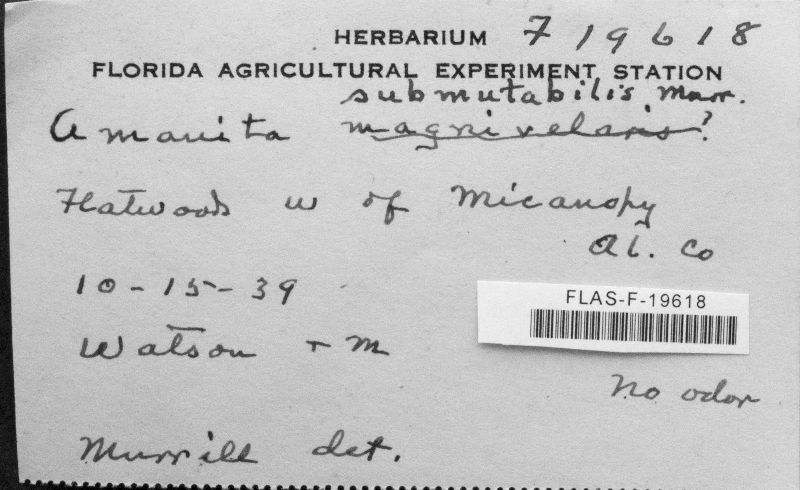 HERBARIUM F 19618
FLORIDA AGRICULTURAL EXPERIMENT STATION
submutabilis Murr.
Amanita magnivelaris?
Flatwoods w of Micanopy
Al. Co
10-15-39
FLAS-F-19618
Watson + M
No odor
Murrill det.